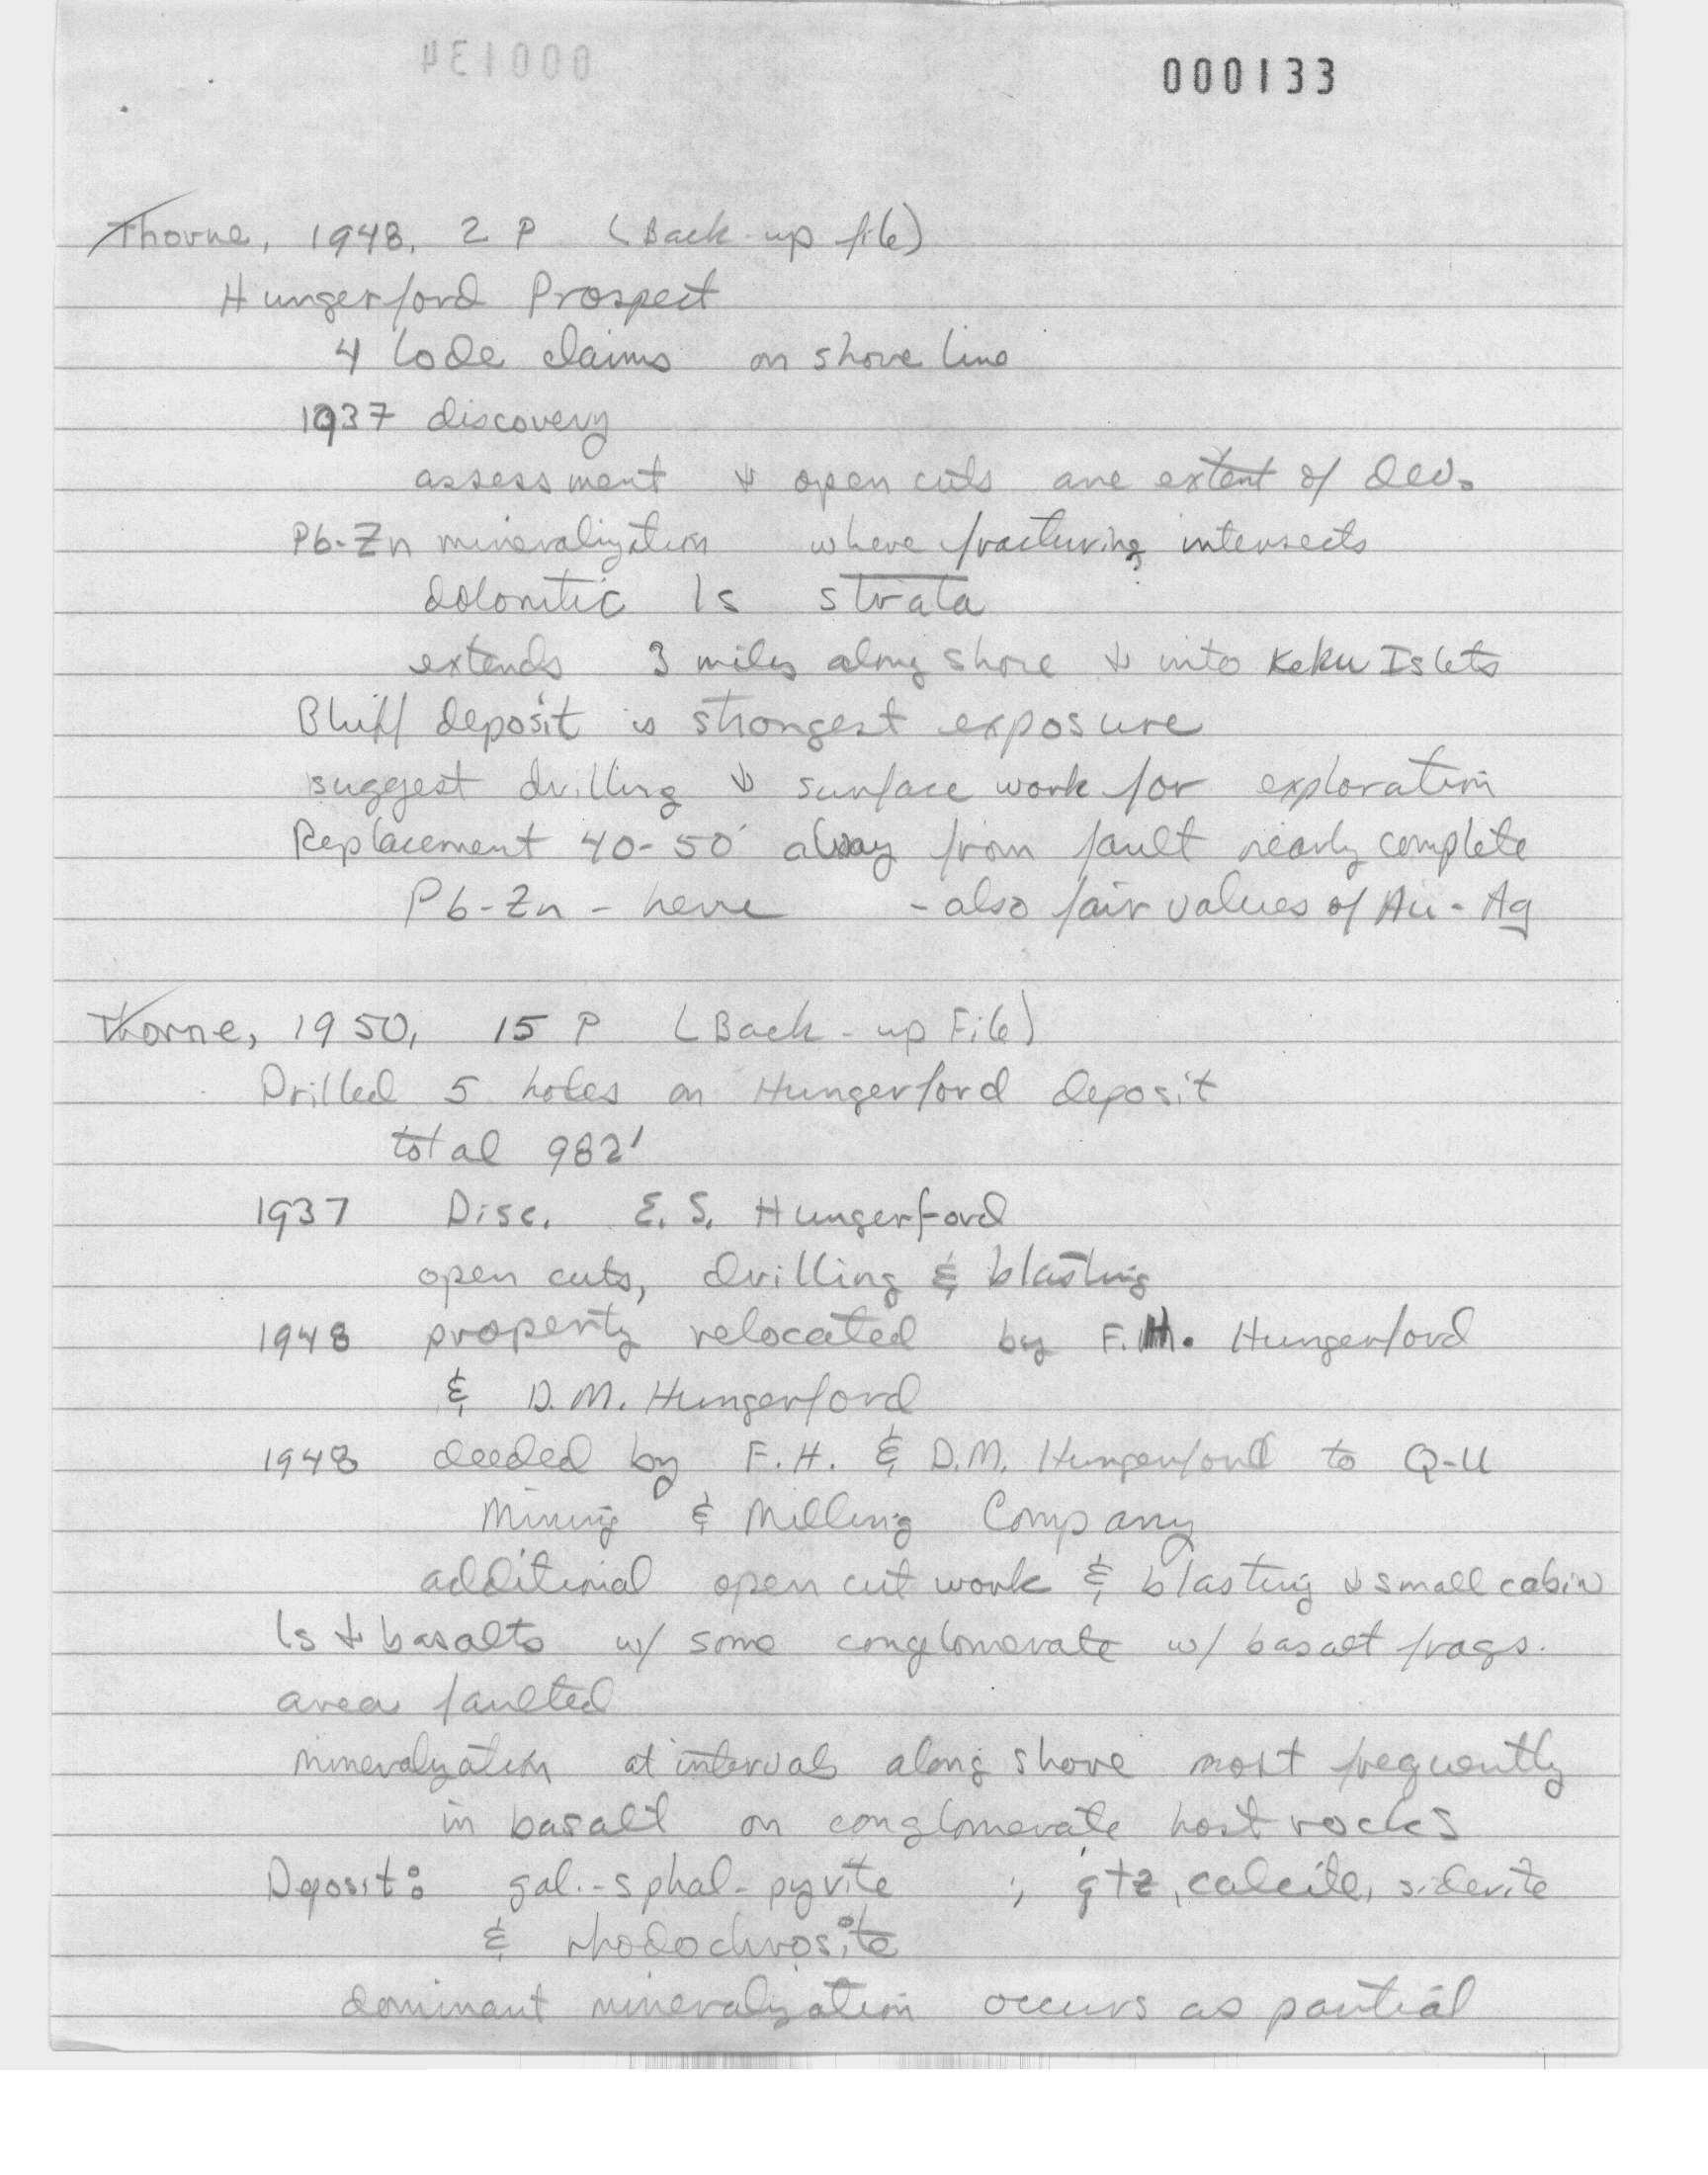 000134
000133
Thorne, 1948, 2 P (Back-up file)
Hungerford Prospect
4 lode claims on shore line
1937 discovery
assessment & open cuts are extent of dev.
Pb-Zn mineralization where fracturing intersects
dolomitic ls strata
extends 3 miles along shore & into Keku Islets
Bluff deposit is strongest exposure
suggest drilling & surface work for exploration
Replacement 40-50' away from fault nearly complete
Pb-Zn - here - also fair values of Au-Ag
Thorne, 1950, 15 P (Back-up File)
Drilled 5 holes on Hungerford deposit
total 982'
1937 Disc. E.S. Hungerford
open cuts, drilling & blasting
1948 property relocated by F.H. Hungerford
& D.M. Hungerford
1948 deeded by F.H. & D.M. Hungerford to Q-U
Mining & Milling Company
additional open cut work & blasting & small cabin
ls & basalts w/ some conglomerate w/ basalt frags.
area faulted
mineralization at intervals along shore most frequently
in basalt or conglomerate host rocks
Deposit: gal.-sphal-pyrite ; qtz, calcite, siderite
& rhodochrosite
dominant mineralization occurs as partial